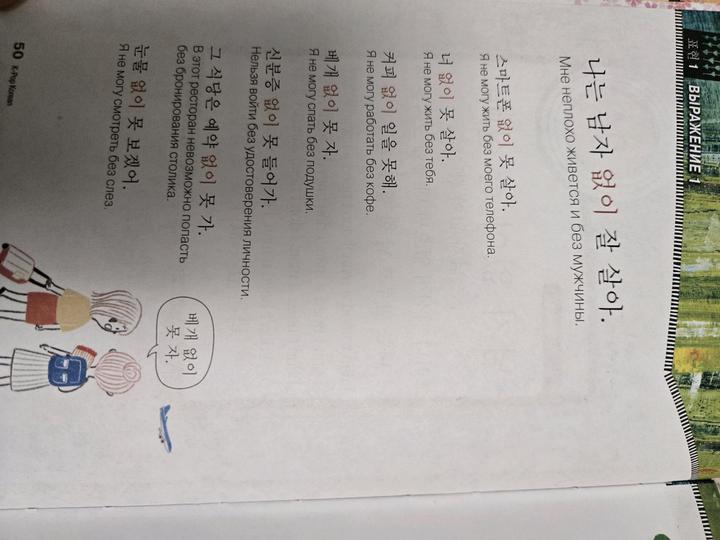 표현 1
ВЫРАЖЕНИЕ 1
나는 남자 없이 잘 살아.
Мне неплохо живется и без мужчины.
스마트폰 없이 못 살아.
Я не могу жить без моего телефона.
너 없이 못 살아.
Я не могу жить без тебя.
커피 없이 일을 못해.
Я не могу работать без кофе.
베개 없이 못 자.
Я не могу спать без подушки.
신분증 없이 못 들어가.
Нельзя войти без удостоверения личности.
그 식당은 예약 없이 못 가.
В этот ресторан невозможно попасть
без бронирования столика.
눈물 없이 못 보겠어.
Я не могу смотреть без слез.
베개 없이
못 자.
50 K-Pop Korean